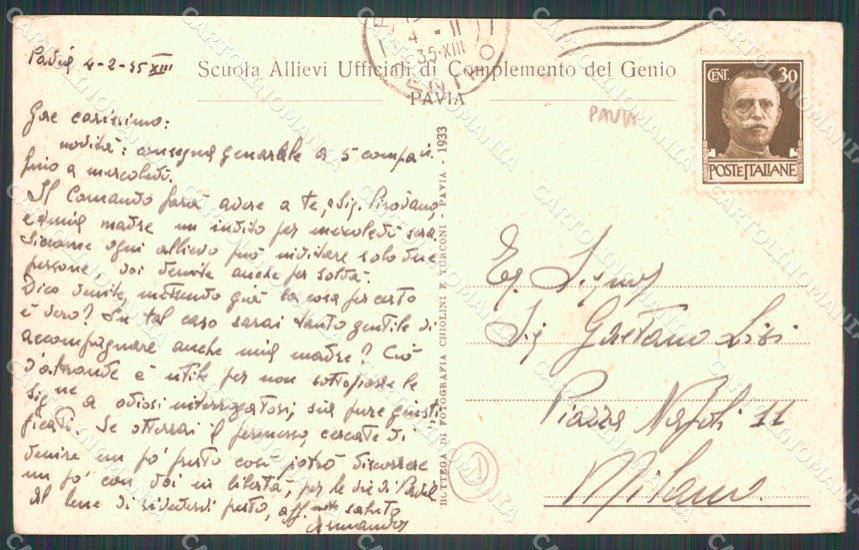 Pavia 4-2-35 XIII
Scuola Allievi Ufficiali di Complemento del Genio
PAVIA
4 - II
35-XIII
CENT. 30
POSTE ITALIANE
PAVIA
carissimo:
novità: consegna generale a 5 compa.
fino a mercoledì.
Il Comando farà avere a te, a Sig. Pirovano,
e a mia madre un invito per mercoledì sera.
Siccome ogni allievo può invitare solo due
persone, voi venite anche per
Dico venite, mettendo già la cosa per certo
è vero? In tal caso sarai tanto gentile di
accompagnare anche mia madre? Ciò
d'altronde è utile per non sottoporre le
sig.ne a odiosi interrogatori, sia pure giusti
ficati. Se otterrai il permesso, cercate di
venire un po' presto così potrò discorrere
un po' con voi in libertà, per le vie di Pavia.
Al bene di rivedervi presto, aff. mente saluto
Armando
BOTTEGA DI FOTOGRAFIA CHIOLINI E TURCONI - PAVIA - 1933
Eg. Signor
Sig Gaetano Lisi
Piazza Napoli 11
Milano.
1
CARTOLINOMANIA